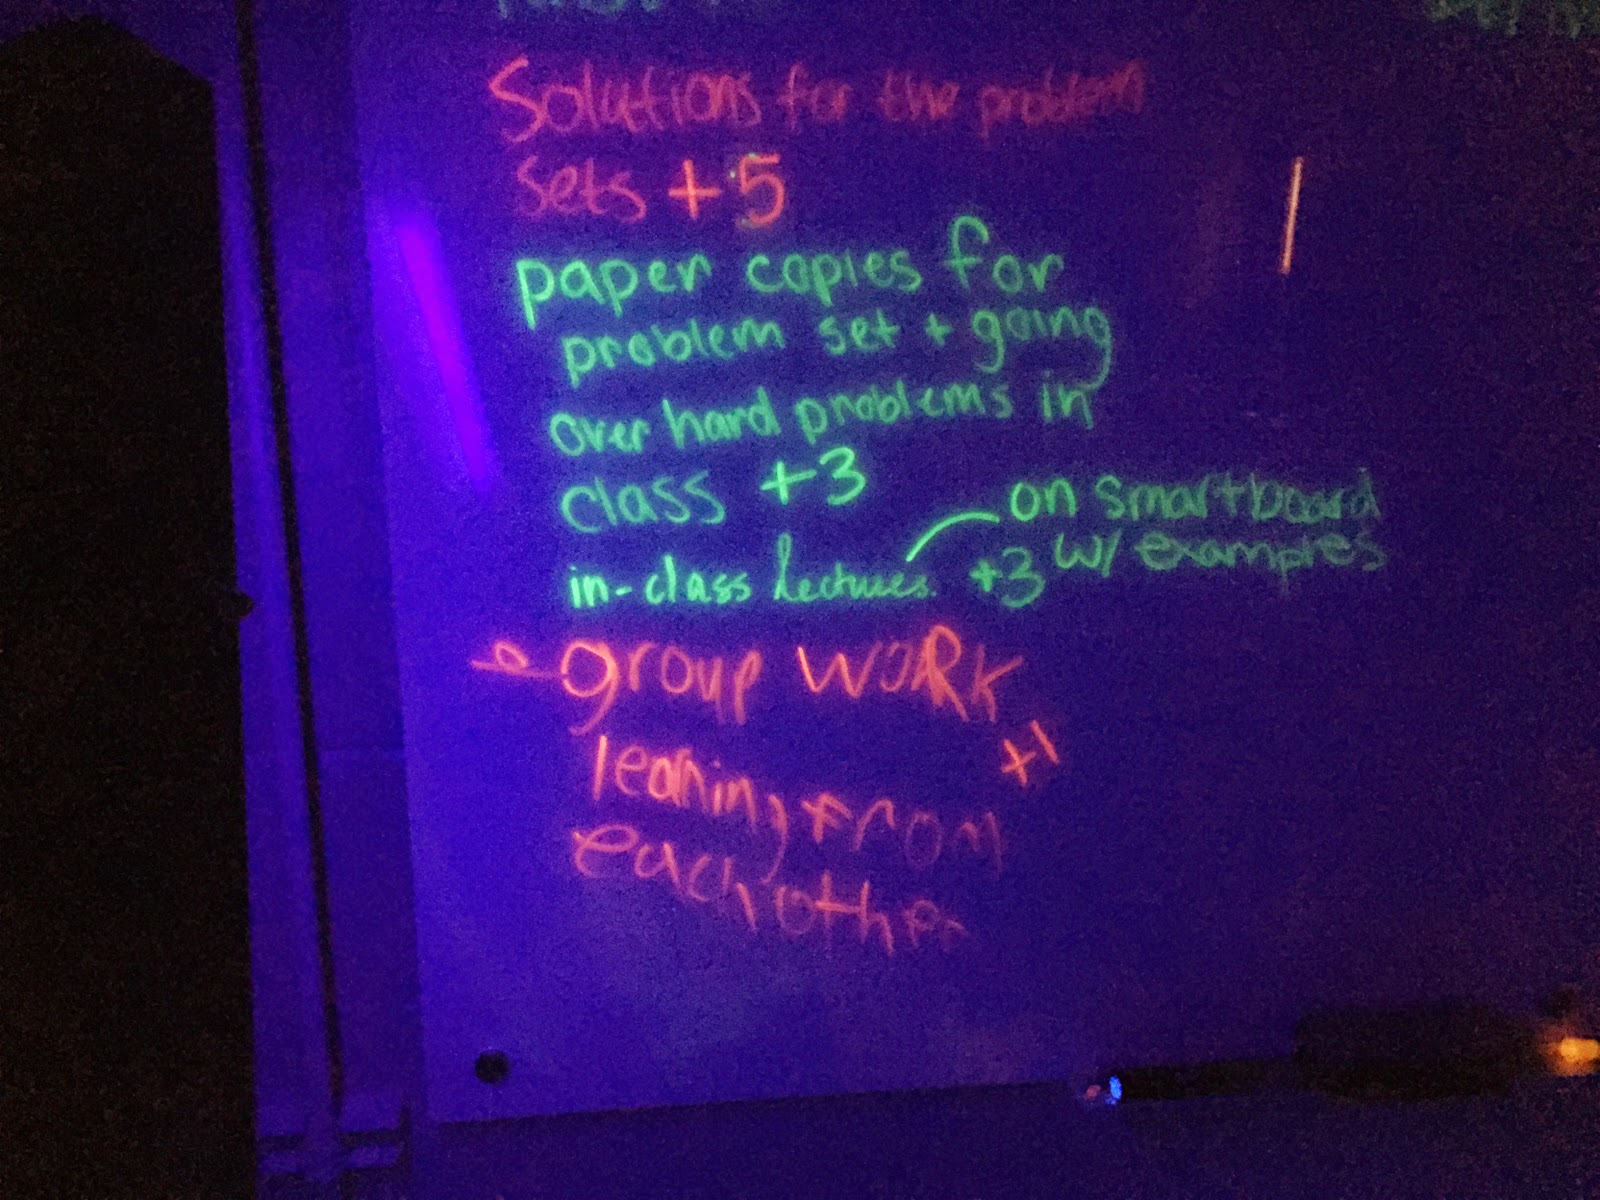 Solutions for the problem
sets +5
paper copies for
problem set + going
over hard problems in
class +3
on smartboard
w/ examples
in-class Lectures. +3
group WORK
+1
learning from
each other